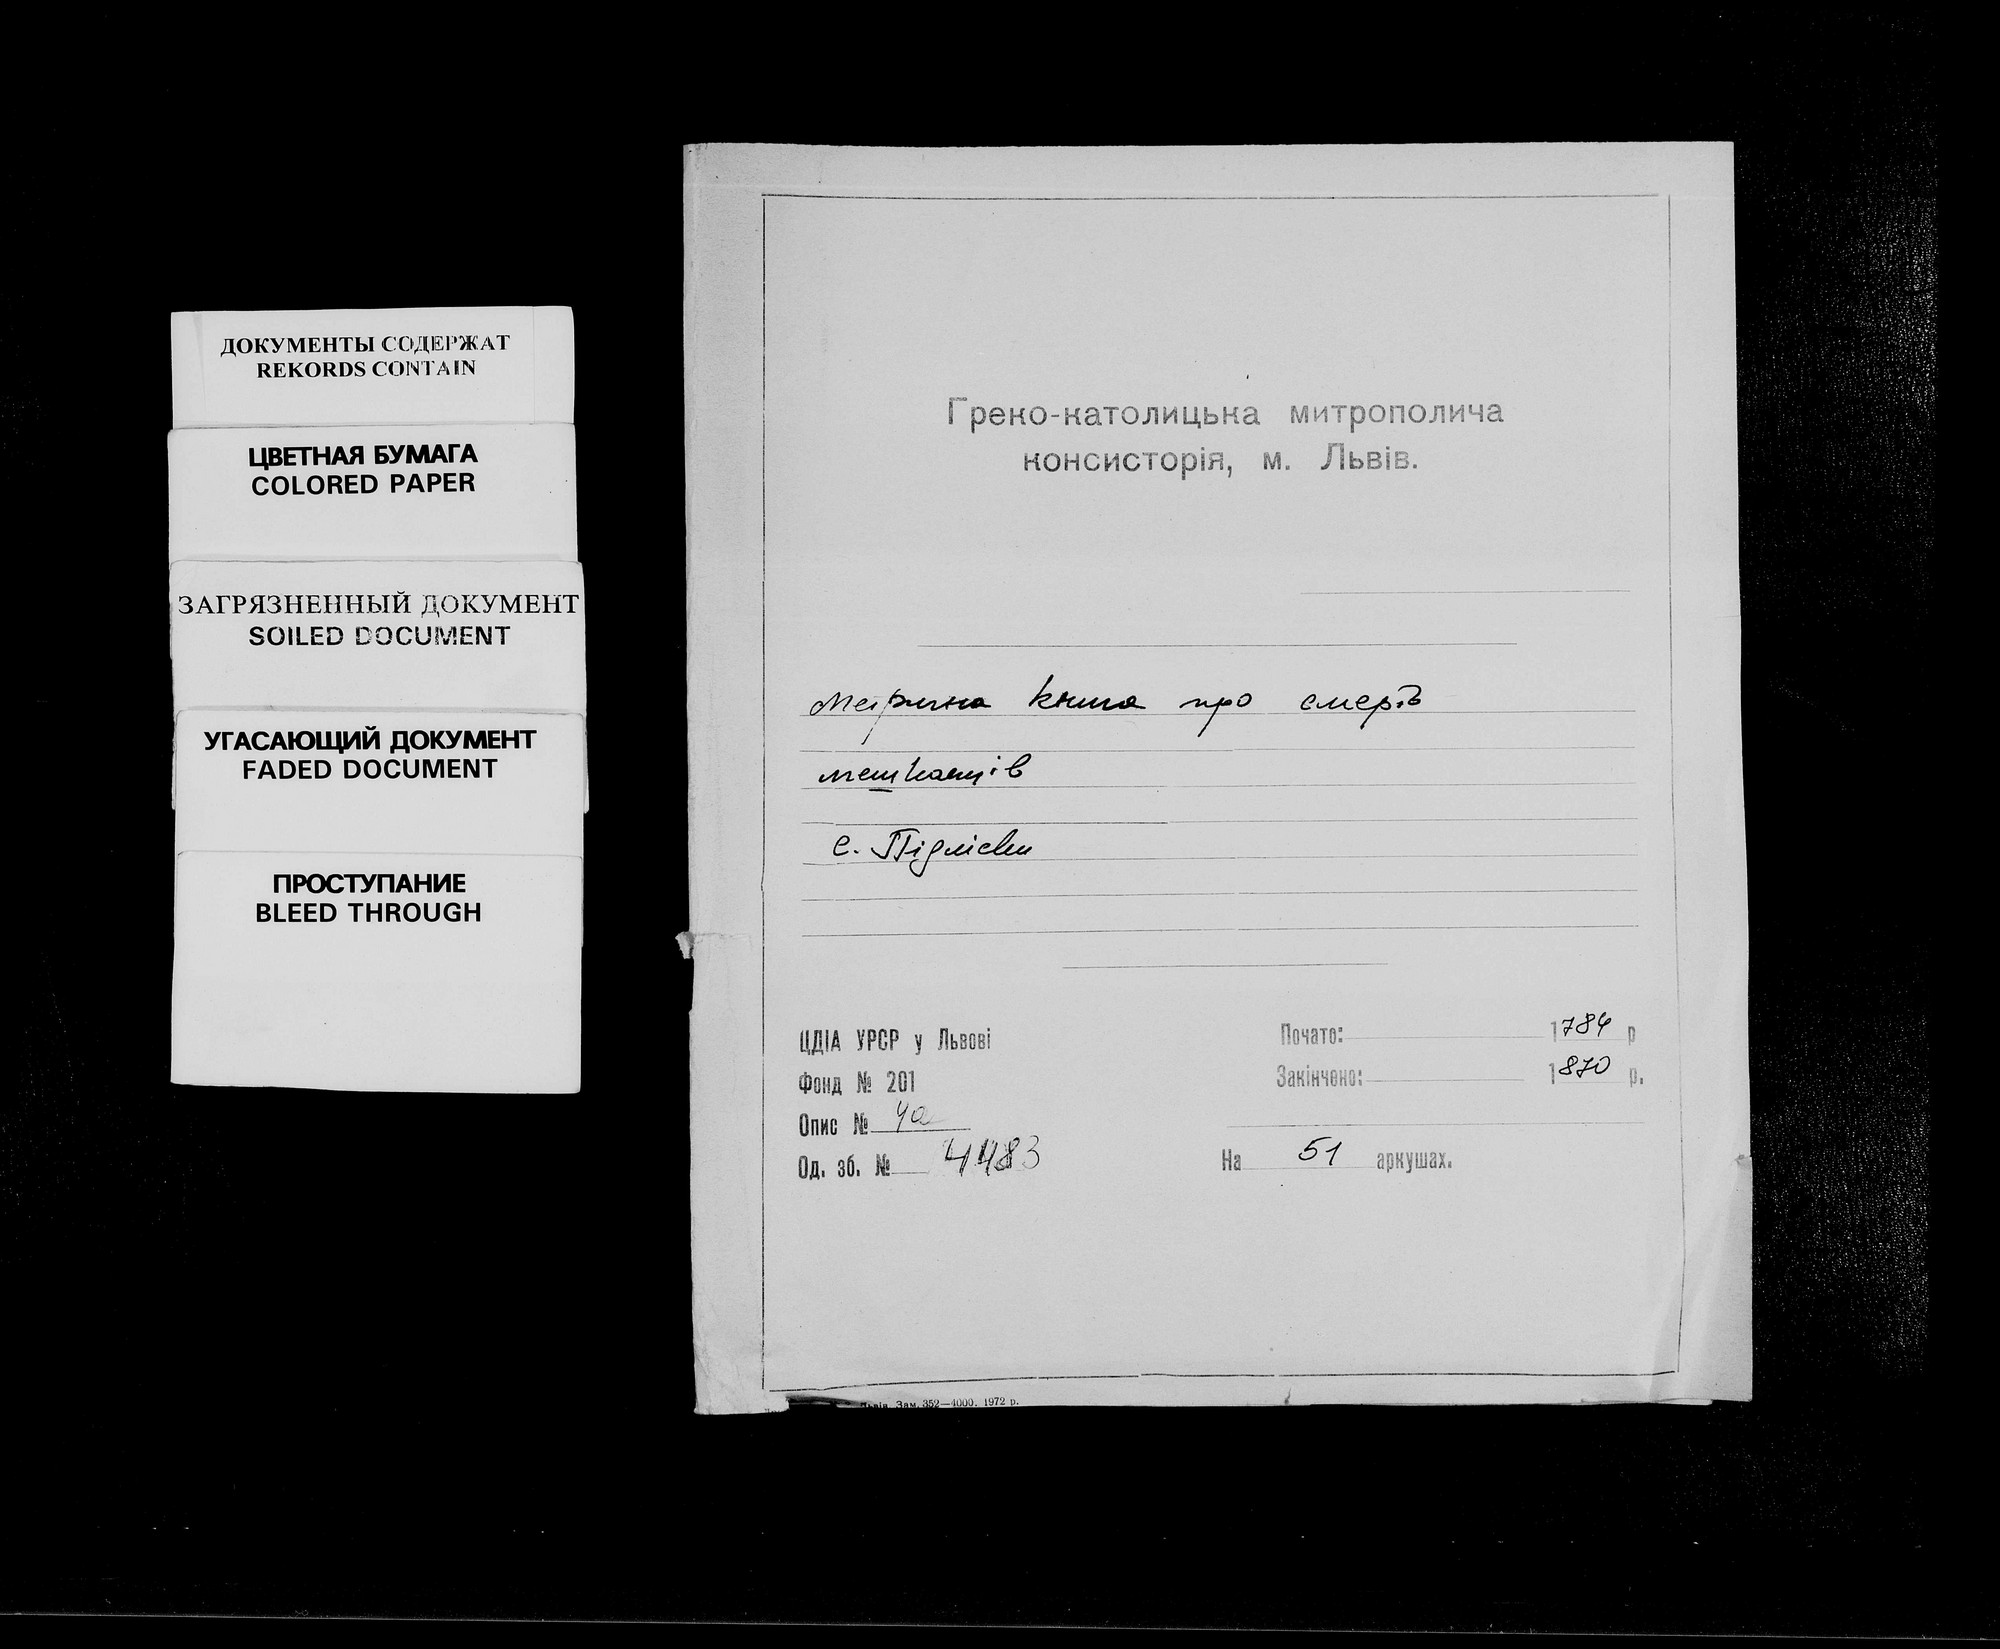 ДОКУМЕНТЫ СОДЕРЖАТ
REKORDS CONTAIN
ЦВЕТНАЯ БУМАГА
COLORED PAPER
ЗАГРЯЗНЕННЫЙ ДОКУМЕНТ
SOILED DOCUMENT
УГАСАЮЩИЙ ДОКУМЕНТ
FADED DOCUMENT
ПРОСТУПАНИЕ
BLEED THROUGH
Греко-католицька митрополича
консисторія, м. Львів.
Метрична книга про смерть
мешканців
с. Підліски
ЦДІА УРСР у Львові
Фонд № 201
Опис № 4а
Од. зб. № 4483
Почато: 1784 р
Закінчено: 1870 р.
На 51 аркушах.
Львів. Зам. 352—4000. 1972 р.